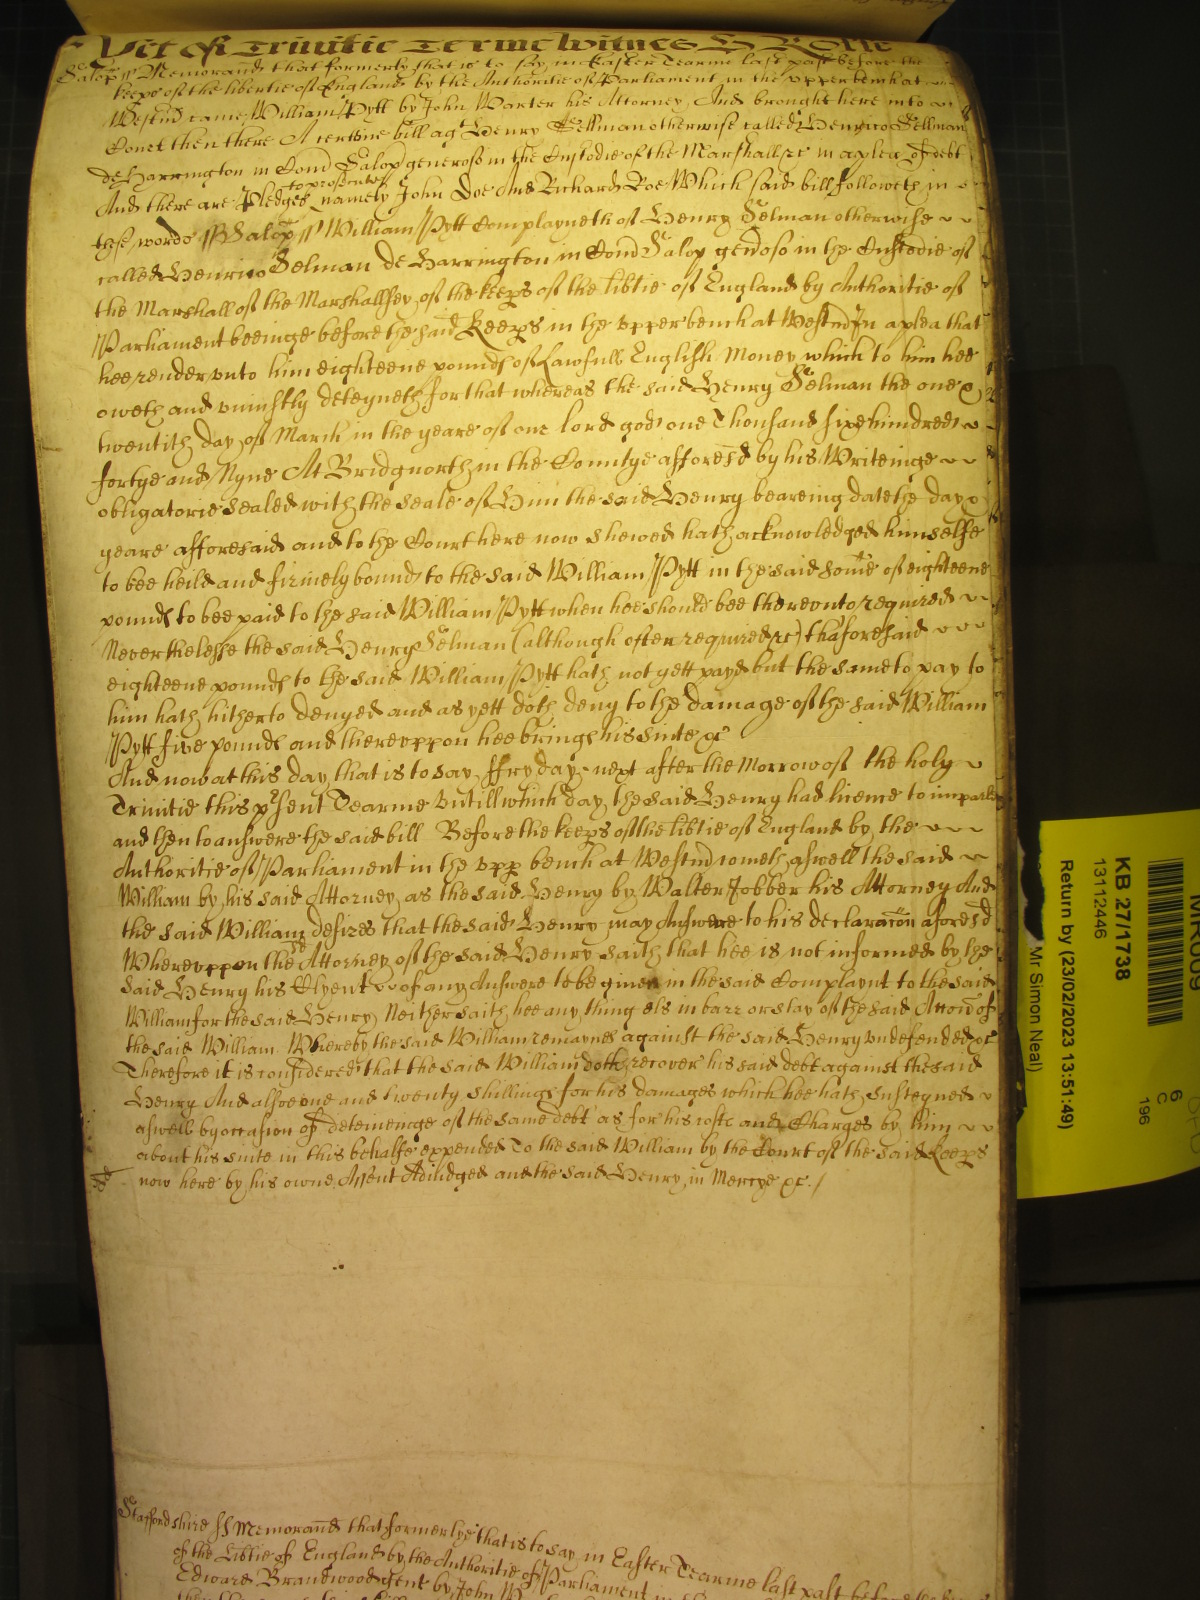 Yet of Trinitie Terme Witnes H Rolle
Salop ss Memorand that formerly that is to say in Easter Tearme last past before the
keeps of the libertie of England by the Authoritie of Parliament in the upper bench at
Westmr came William Pytt by John Warter his Attorney And brought here into
Court then there A certeine bill agt Henry Sellman otherwise called Henrico Sellman
de Harrington in Com Salop generoso in the Custodie of the Marshall &c in a plea of debt
And there are Pledges to prosecute namely John Doe And Richard Roe Which said bill followeth in
these words ss Salop ss William Pytt Complayneth of Henry Selman otherwise
called Henrico Selman de Harrington in Com Salop genoso in the Custodie of
the Marshall of the Marshallsey of the keeps of the libtie of England by Authoritie of
Parliament beeinge before the said Keeps in the upper bench at Westm In a plea that
hee render unto him eighteene pounds of Lawfull English Money which to him hee
oweth and uniustly deteyneth for that whereas the said Henry Selman the one &
twentith day of March in the yeare of our lord god one Thousand sixe hundred
fortye and Nyne At Bridgnorth in the Countye afforesd by his Writeinge
obligatorie sealed with the seale of Him the said Henry beareing date the day &
yeare afforesaid and to the Court here now shewed hath acknowledged himselfe
to bee heild and firmely bound to the said William Pytt in the said some of eighteene
pounds to bee paid to the said William Pytt when hee should bee thereunto required
Neverthelesse the said Henry Selman (although often required &c) thaforesaid
eighteene pounds to the said William Pytt hath not yett payd but the same to pay to
him hath hitherto denyed and as yett doth deny to the damage of the said William
Pytt five pounds and thereuppon hee brings his suite &c
And now at this day that is to say ffryday next after the Morrow of the holy
Trinitie this psent Tearme Untill which day the said Henry had licence to imparle
and then to answere the said bill Before the keeps of the libtie of England by the
Authoritie of Parliament in the upp bench at Westm cometh aswell the said
William by his said Attorney as the said Henry by Walter Jobber his Attorney And
the said William desires that the said Henry may Answere to his declaracon aforesd
Whereuppon the sd Attorney of the said Henry saith that hee is not informed by the
said Henry his Clyent of any Answere to be given in the said Complaynt to the said
William for the said Henry Neither saith hee any thing els in barr or stay of the said Accon of
the said William Whereby the said William remaynes against the said Henry undefended &c
Therefore it is considered that the said William doth recover his said debt against the said
Henry And alsoe one and twenty shillings for his damages which hee hath Susteyned
aswell by occasion of deteineinge of the same debt as for his costs and Charges by him
about his suite in this behalfe expended To the said William by the Court of the said Keeps
now here by his owne Assent Adiudged and the said Henry in Mercye &c./
Staffordshire ss Memorand that formerlye that is to say in Easter Tearme last past before the
of the Libtie of England by the Authoritie of Parliament in
Edward Brandwood Gent by John
MR009
KB 27/1738
13112446
Return by (23/02/2023 13:51:49)
Mr Simon Neal)
6
C
196